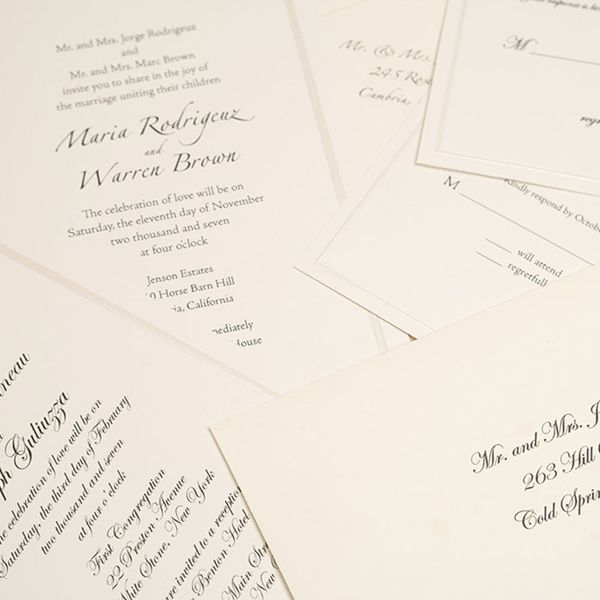 Mr. and Mrs. Jorge Rodrigeuz
and
Mr. and Mrs. Marc Brown
invite you to share in the joy of
the marriage uniting their children
Maria Rodrigeuz
and
Warren Brown
The celebration of love will be on
Saturday, the eleventh day of November
two thousand and seven
at four o'clock
Jenson Estates
Horse Barn Hill
California
House
Mr. & Mrs.
245
Cambria,
M
M
Kindly respond by October
will attend
regretfull
Guliuzza
celebration of love will be on
Saturday, the third day of February
two thousand and seven
at four o'clock
First Congregation
22 Preston Avenue
White Stone, New York
are invited to a reception
Benton Hotel
Main
New
Mr. and Mrs. J
263 Hill
Cold